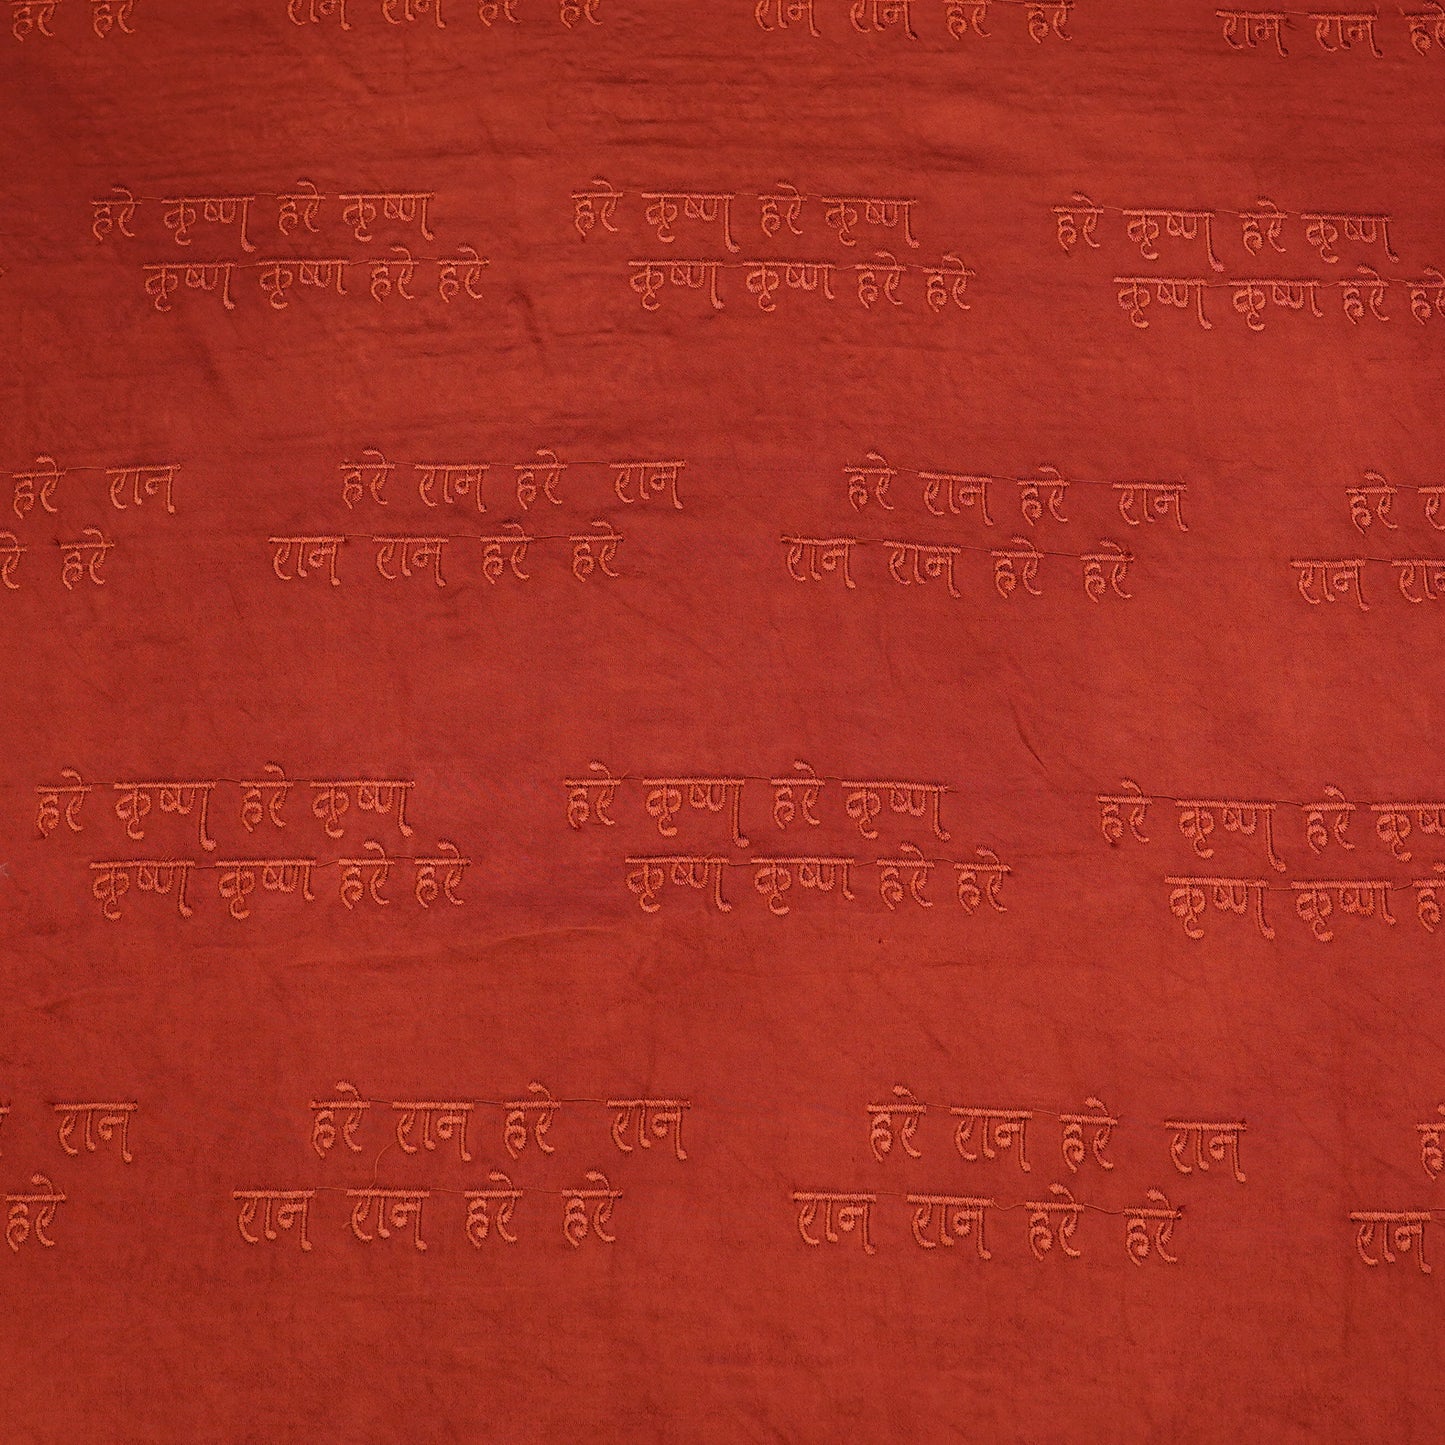 हरे हरे राम राम हरे हरे राम राम हरे हरे राम राम
हरे कृष्ण हरे कृष्ण हरे कृष्ण हरे कृष्ण हरे कृष्ण हरे कृष्ण
कृष्ण कृष्ण हरे हरे कृष्ण कृष्ण हरे हरे कृष्ण कृष्ण हरे हरे
हरे राम हरे राम हरे राम हरे राम हरे राम हरे
हरे राम राम हरे हरे राम राम हरे हरे राम
हरे कृष्ण हरे कृष्ण हरे कृष्ण हरे कृष्ण हरे कृष्ण हरे कृष्ण
कृष्ण कृष्ण हरे हरे कृष्ण कृष्ण हरे हरे कृष्ण कृष्ण
राम हरे राम हरे राम हरे राम हरे राम
हरे राम राम हरे हरे राम राम हरे हरे राम